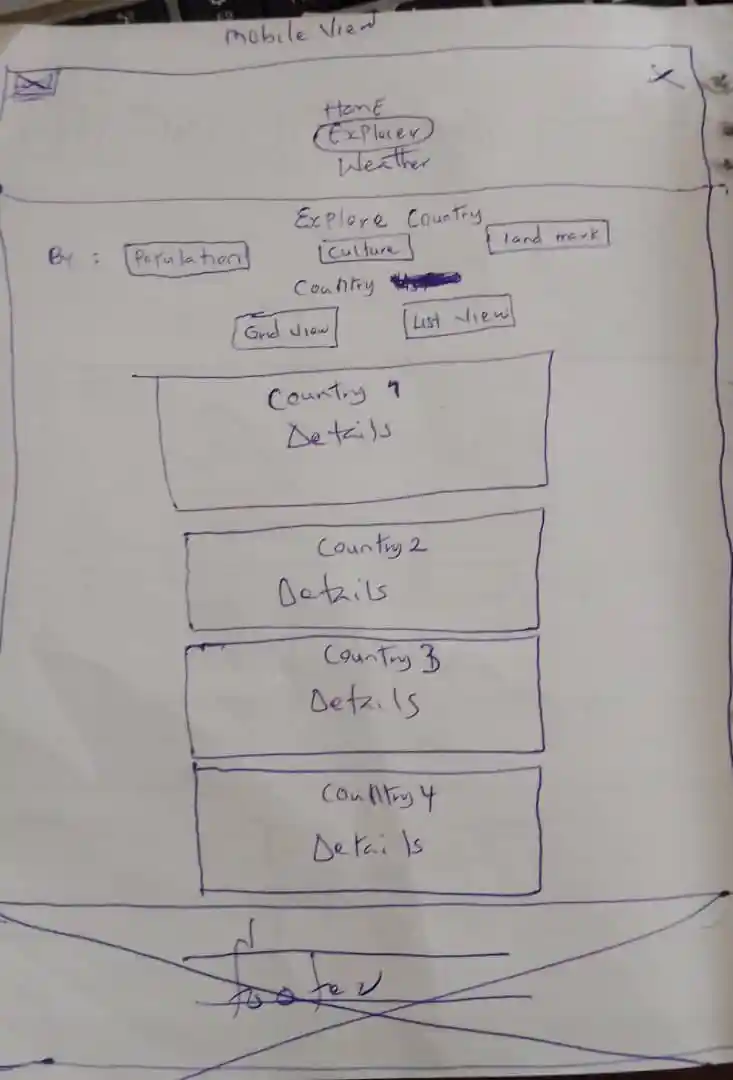 Mobile View
X
Home
Explorer
Weather
Explore Country
By : Population Culture land mark
Country
Grid View List View
Country 1
Details
Country 2
Details
Country 3
Details
Country 4
Details
footer